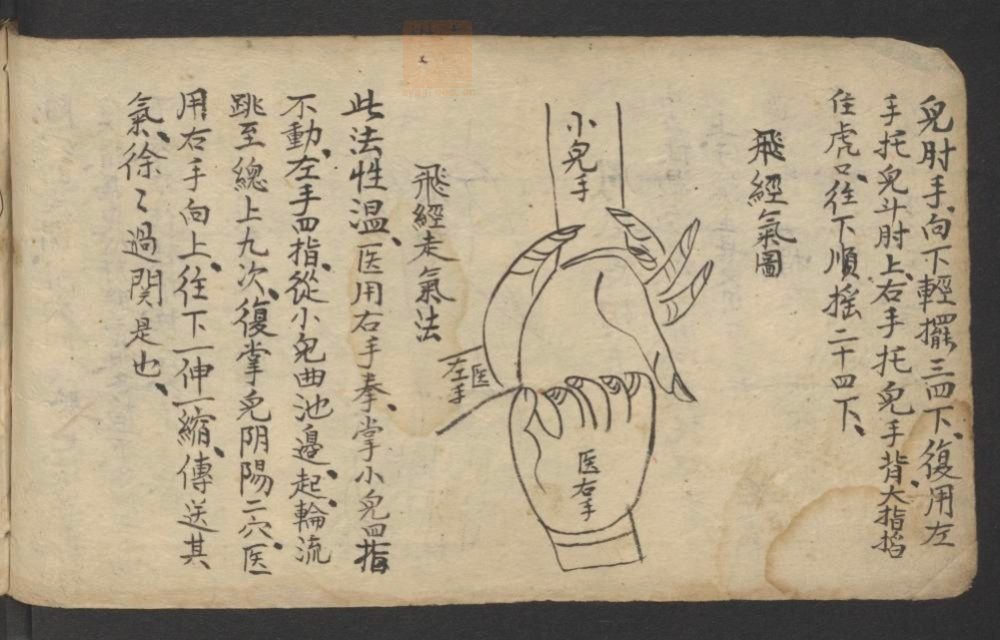 皃肘手、向下輕擺三四下、復用左
手托皃斗肘上、右手托皃手背、大指掐
住虎口、往下順揺二十四下、
飛經氣圖
小皃手
医左手
医右手
飛經走氣法
此法性温、医用右手拳、掌小皃四指
不動、左手四指、從小皃曲池邉、起輪流
跳至總上九次、復掌皃阴陽二穴、医
用右手向上、往下一伸一縮、傳送其
氣、徐〻過関是也、